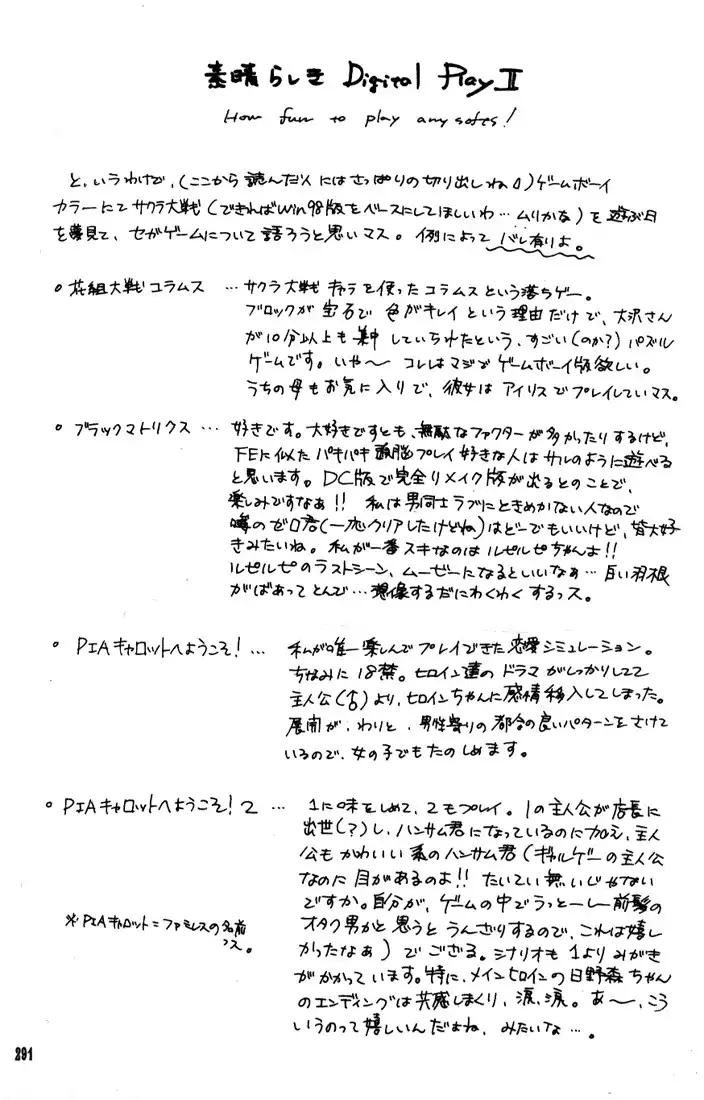 素晴らしき Digital Play Ⅱ
How fun to play any softs!
と、いうわけで、(ここから読んだ人にはさっぱりの切り出しねΔ)ゲームボーイ
カラーにてサクラ大戦(できればWin98版をベースにしてほしいわ…ムリかな)を遊ぶ日
を夢見て、セガゲームについて語ろうと思いマス。例によってバレ有りよ。
○ 花組大戦コラムス …サクラ大戦キャラを使ったコラムスという落ちゲー。
ブロックが宝石で色がキレイという理由だけで、大沢さん
が10分以上も集中していられたという、すごい(のか?)パズル
ゲームです。いや〜コレはマジでゲームボーイ版欲しい。
うちの母もお気に入りで、彼女はアイリスでプレイしていマス。
○ ブラックマトリクス … 好きです。大好きですとも、無駄なファクターが多かったりするけど、
FEに似たパキパキ頭脳プレイ好きな人はサルのように遊べる
と思います。DC版で完全リメイク版が出るとのことで、
楽しみですなぁ!! 私は男同士ラブにときめかない人なので
噂のゼロ君(一応クリアしたけどね)はどーでもいいけど、皆大好
きみたいね。私が一番スキなのはルピルピちゃんよ!!
ルピルピのラストシーン、ムービーになるといいなぁ…白い羽根
がばあってとんで…想像するだにわくわくするっス。
○ PIAキャロットへようこそ! … 私が唯一楽しんでプレイできた恋愛シミュレーション。
ちなみに18禁。ヒロイン達のドラマがしっかりしてて
主人公(♂)より、ヒロインちゃんに感情移入してしまった。
展開が、わりと、男性寄りの都合の良いパターンをさけて
いるので、女の子でもたのしめます。
○ PIAキャロットへようこそ! 2 … 1に味をしめて、2もプレイ。1の主人公が店長に
出世(?)し、ハンサム君になっているのに加え、主人
公もかわいい系のハンサム君(ギャルゲーの主人公
なのに目があるのよ!! たいてい無いじゃない
ですか。自分が、ゲームの中でうっとーしー前髪の
オタク男かと思うとうんざりするので、これは嬉し
かったなぁ)でござる。シナリオも1よりみがき
がかかっています。特に、メインヒロインの日野森ちゃん
のエンディングは共感しまくり、涙、涙。あ〜、こう
いうのって嬉しいんだよね、みたいな…。
※PIAキャロット=ファミレスの名前
っス。
291